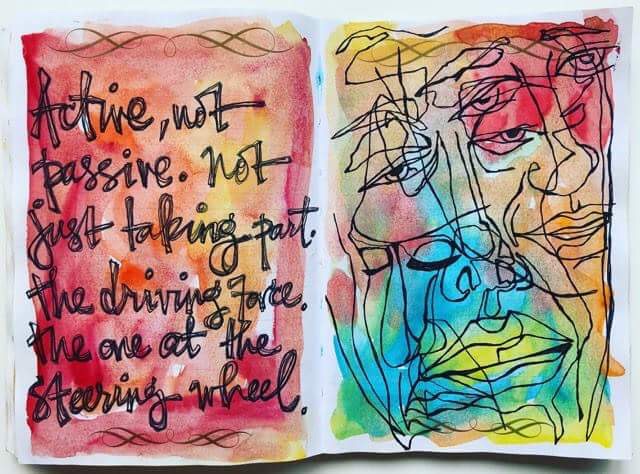 Active, not
passive. Not
just taking part.
the driving force.
the one at the
steering wheel.